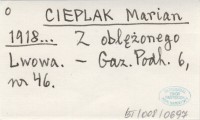 o CIEPLAK Marian
1918... Z oblężonego
Lwowa. – Gaz. Podh. 6,
nr 46.